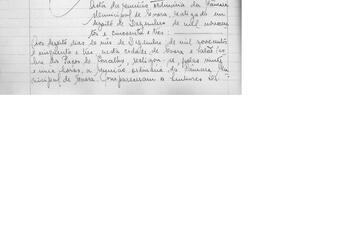 Acta da reunião ordinária da Câmara
Municipal de Evora, realizada em
dezoito de Dezembro de mil novecen
tos e cincoenta e três: ———
Aos dezoito dias do mês de Dezembro de mil novecentos
e cincoenta e três, nesta cidade de Evora e salão no
bre dos Paços do Concelho, realizou-se, pelas vinte
e uma horas, a reunião ordinária da Câmara Mu
nicipal de Evora. Compareceram os Senhores